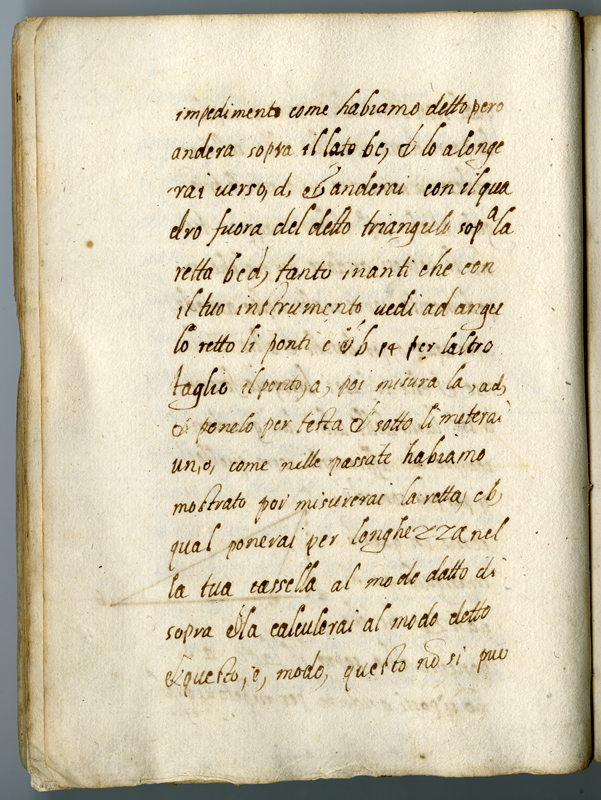 impedimento come habiamo detto pero
andera sopra il lato bc, & lo alonge
rai verso, d, & anderai con il qua
dro fuora del detto triangulo sop.ª la
retta bcd, tanto inanti che con
il tuo instrumento vedi ad angu
lo retto li ponti c & b et per laltro
taglio il ponto, a, poi misura la, ad,
& ponelo per testa & sotto li meterai
un, o, come nelle passate habiamo
mostrato poi misurerai la retta, cb,
qual ponerai per longhezza nel
la tua cassella al modo datto di
sopra & la calculerai al modo detto
& questo, e, modo, questo nõ si puo